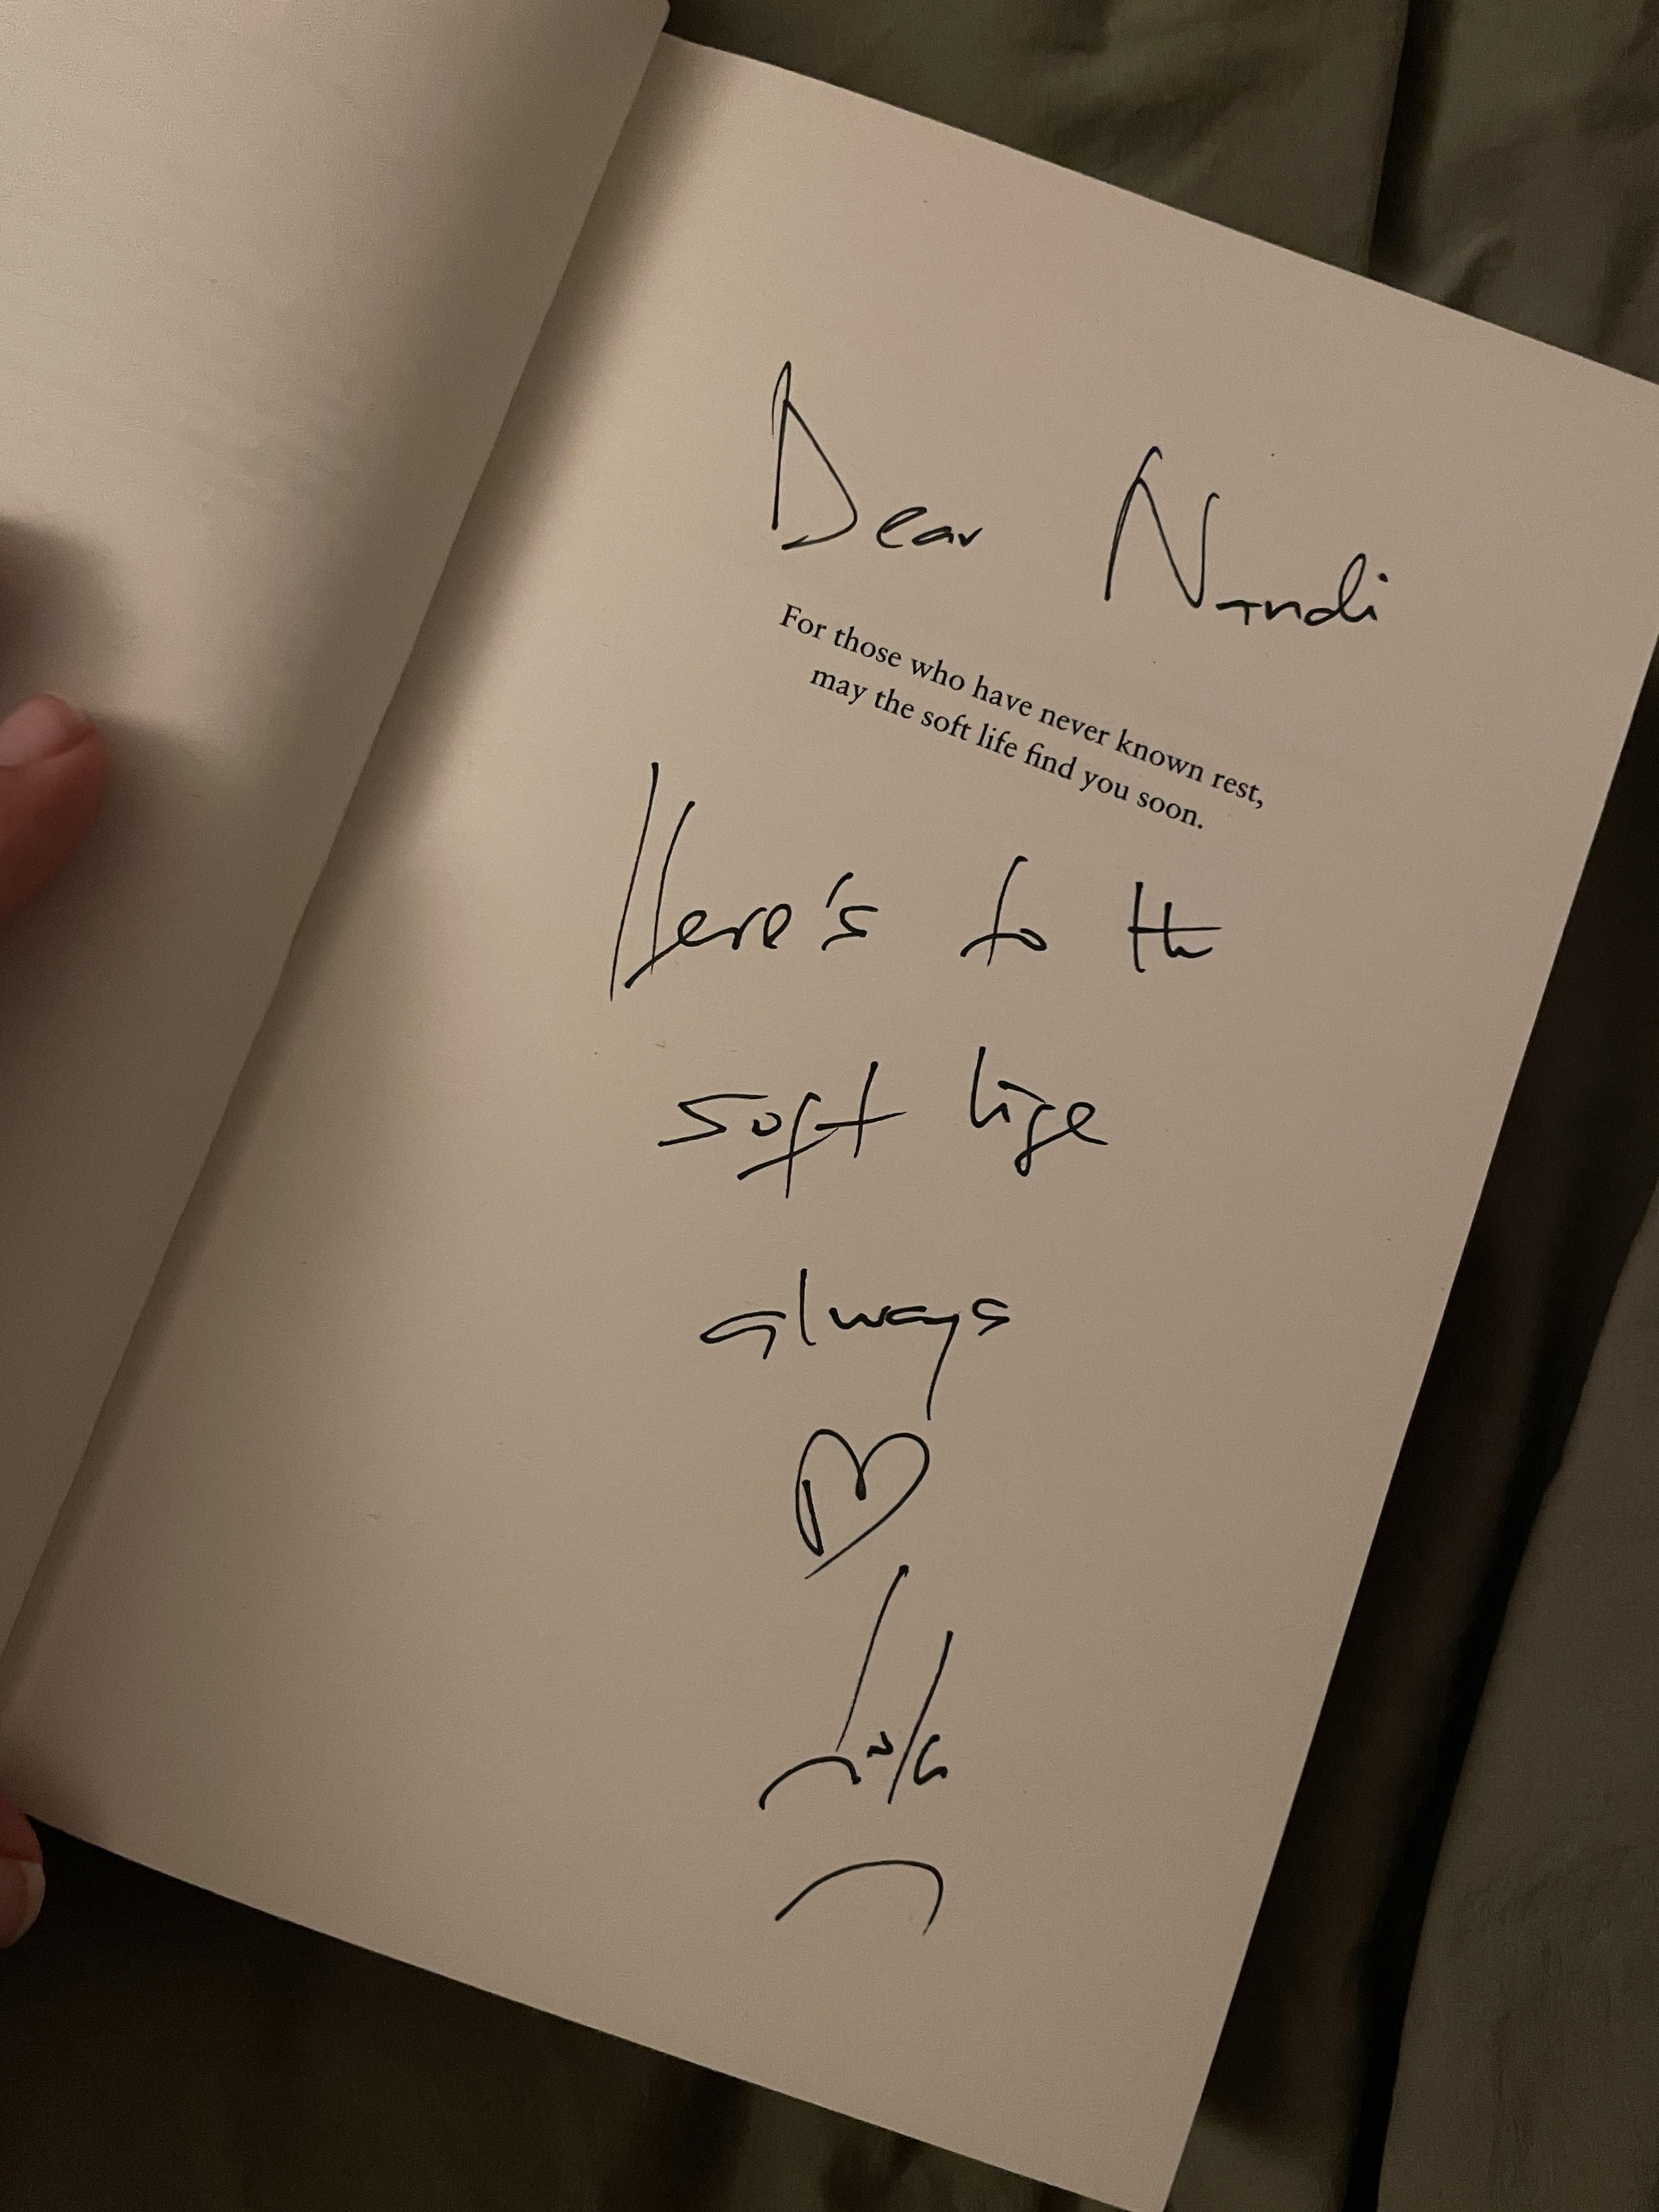 Dear Nandi
For those who have never known rest,
may the soft life find you soon.
Here's to the
soft life
always